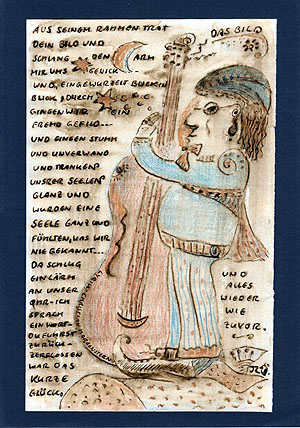 DAS BILD
AUS SEINEM RAHMEN TRAT
DEIN BILD UND
SCHLANG DEN ARM
MIR UMS GENICK
UND, EINGEWURZELT BLICK IN
BLICK, DURCH
GINGEN WIR EIN
FREMD GEFILD...
UND GINGEN STUMM
UND UNVERWAND
UND TRANKEN
UNSRER SEELEN
GLANZ UND
WURDEN EINE
SEELE GANZ UND
FÜHLTEN, WAS WIR
NIE GEKANNT...
DA SCHLUG
EIN LÄRM
AN UNSER
OHR - ICH
SPRACH
EIN WORT -
DU FUHRST
ZURÜCK -
ZERFLOSSEN
WAR DAS
KURZE
GLÜCK,
UND
ALLES
WIEDER
WIE
ZUVOR.